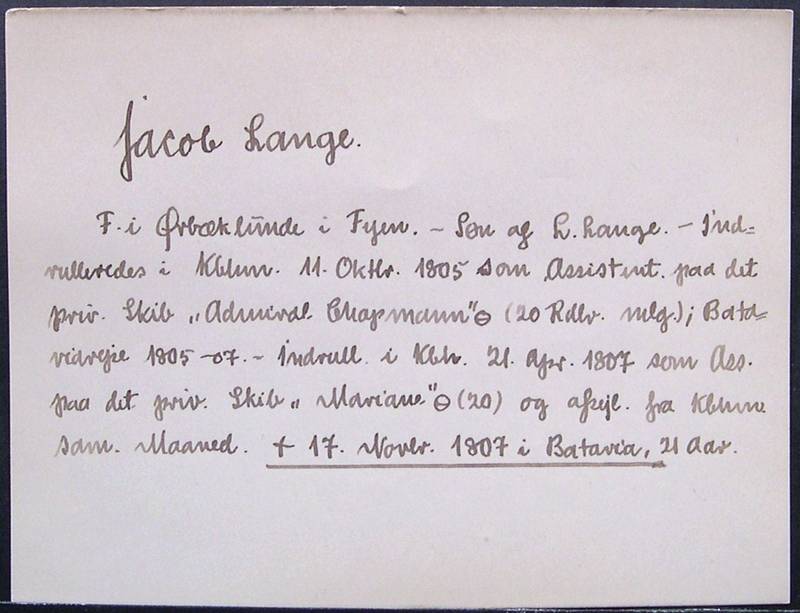 Jacob Lange.
F. i Ørbæklunde i Fyen. - Søn af L. Lange. - Ind=
rulleredes i Kbhvn. 11. Oktbr. 1805 som Assistent. paa det
priv. Skib „Admiral Chapmann" ⊖ (20 Rdlr. mlg.); Bata=
viarejse 1805-07. - Indrull. i Kbh. 21. Apr. 1807 som Ass.
paa det priv. Skib „Mariane" ⊖ (20) og afsejl. fra Kbhvn
sam. Maaned. + 17. Novbr. 1807 i Batavia, 21 Aar.